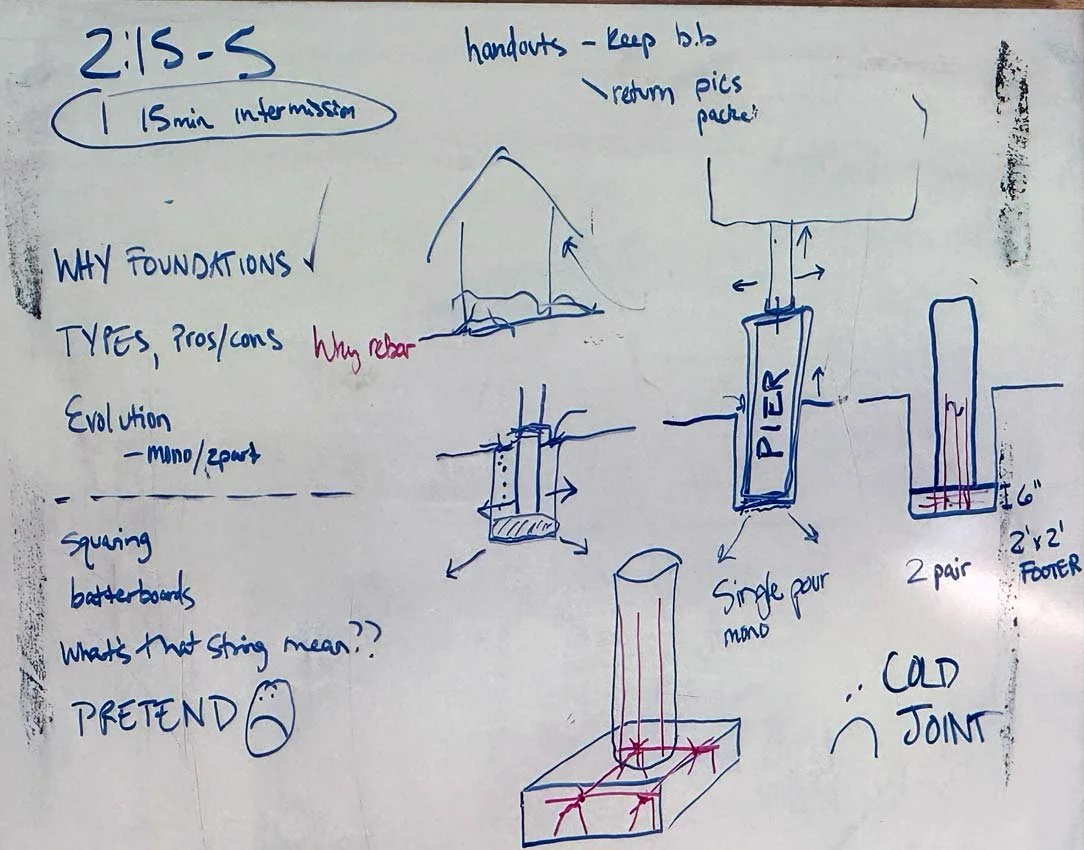 2:15-5
1 15min intermission
handouts - Keep b.b
return pics
packet
WHY FOUNDATIONS ✓
TYPES, Pros/cons
Why rebar
Evolution
- mono/2part
squaring
batterboards
What's that string mean??
PRETEND
PIER
Single pour
mono
6"
2'x2'
FOOTER
2 pair
COLD
JOINT